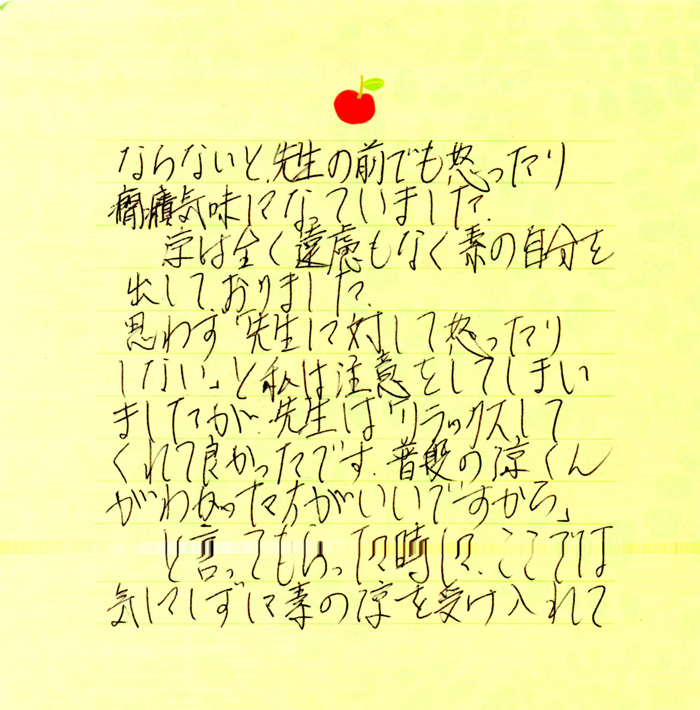 ならないと、先生の前でも怒ったり
癇癪気味になっていました。
涼は全く遠慮もなく素の自分を
出しておりました。
思わず「先生に対して怒ったり
しない」と私は注意をしてしまい
ましたが、先生は「リラックスして
くれて良かったです。普段の涼くん
がわかった方がいいですから」
と言ってもらった時に、ここでは
気にしずに素の涼を受け入れて